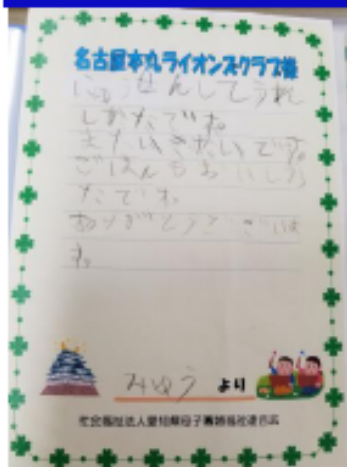 名古屋本丸ライオンズクラブ様
してうれ
しかたです。
またいきたいです。
ごはんもおいしか
たです。
ありがとうござい
す。
みゆう より
社会福祉法人愛知県母子寡婦福祉連合会